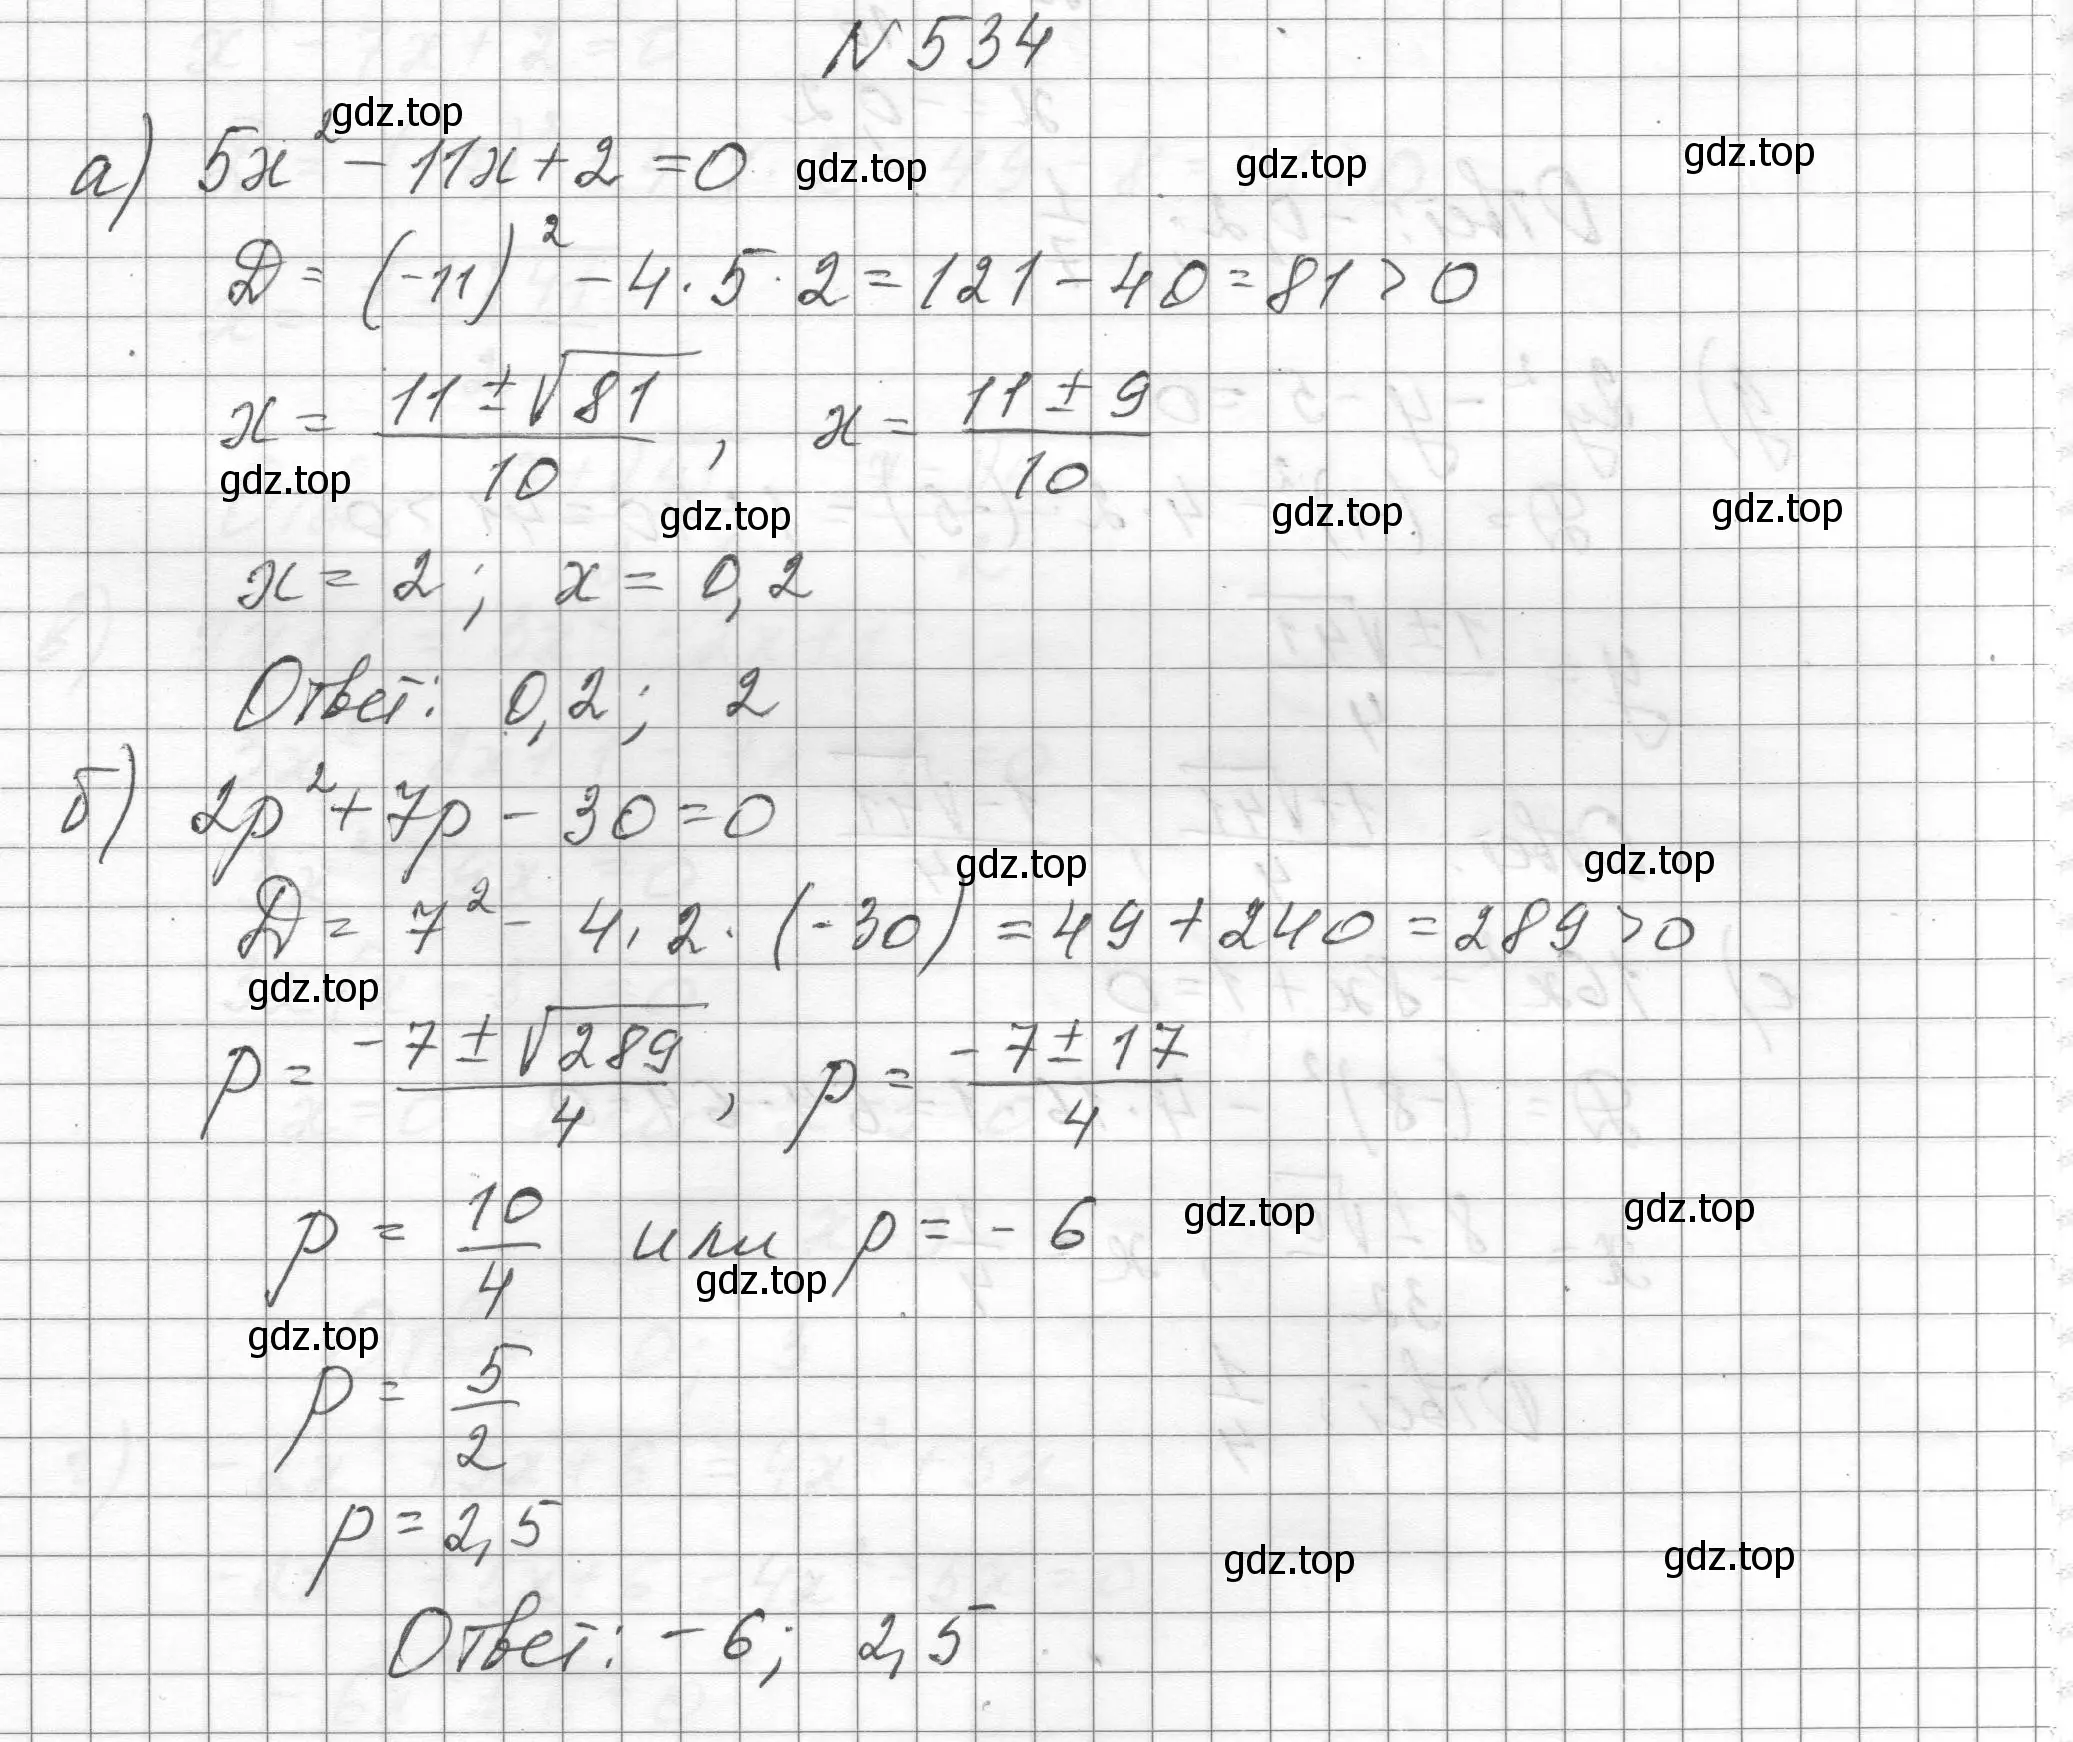 N 534
gdz.top
а) 5x² - 11x + 2 = 0 gdz.top gdz.top gdz.top
Д = (-11)² - 4 · 5 · 2 = 121 - 40 = 81 > 0
x = (11 ± √81)/10 , x = (11 ± 9)/10
gdz.top gdz.top gdz.top gdz.top
x = 2 ; x = 0,2
Ответ: 0,2 ; 2
б) 2p² + 7p - 30 = 0
gdz.top gdz.top
Д = 7² - 4 · 2 · (-30) = 49 + 240 = 289 > 0
gdz.top
p = (-7 ± √289)/4 , p = (-7 ± 17)/4
p = 10/4 или p = - 6 gdz.top gdz.top
gdz.top
gdz.top
p = 5/2
p = 2,5
gdz.top gdz.top
Ответ: - 6 ; 2,5